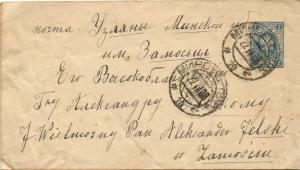 почта Узляны Минской
им. Замосць
Его Высокобла
Гну Александру
J. Wielmożny Pan Aleksander Jelski
w Zamościu
МИНСК